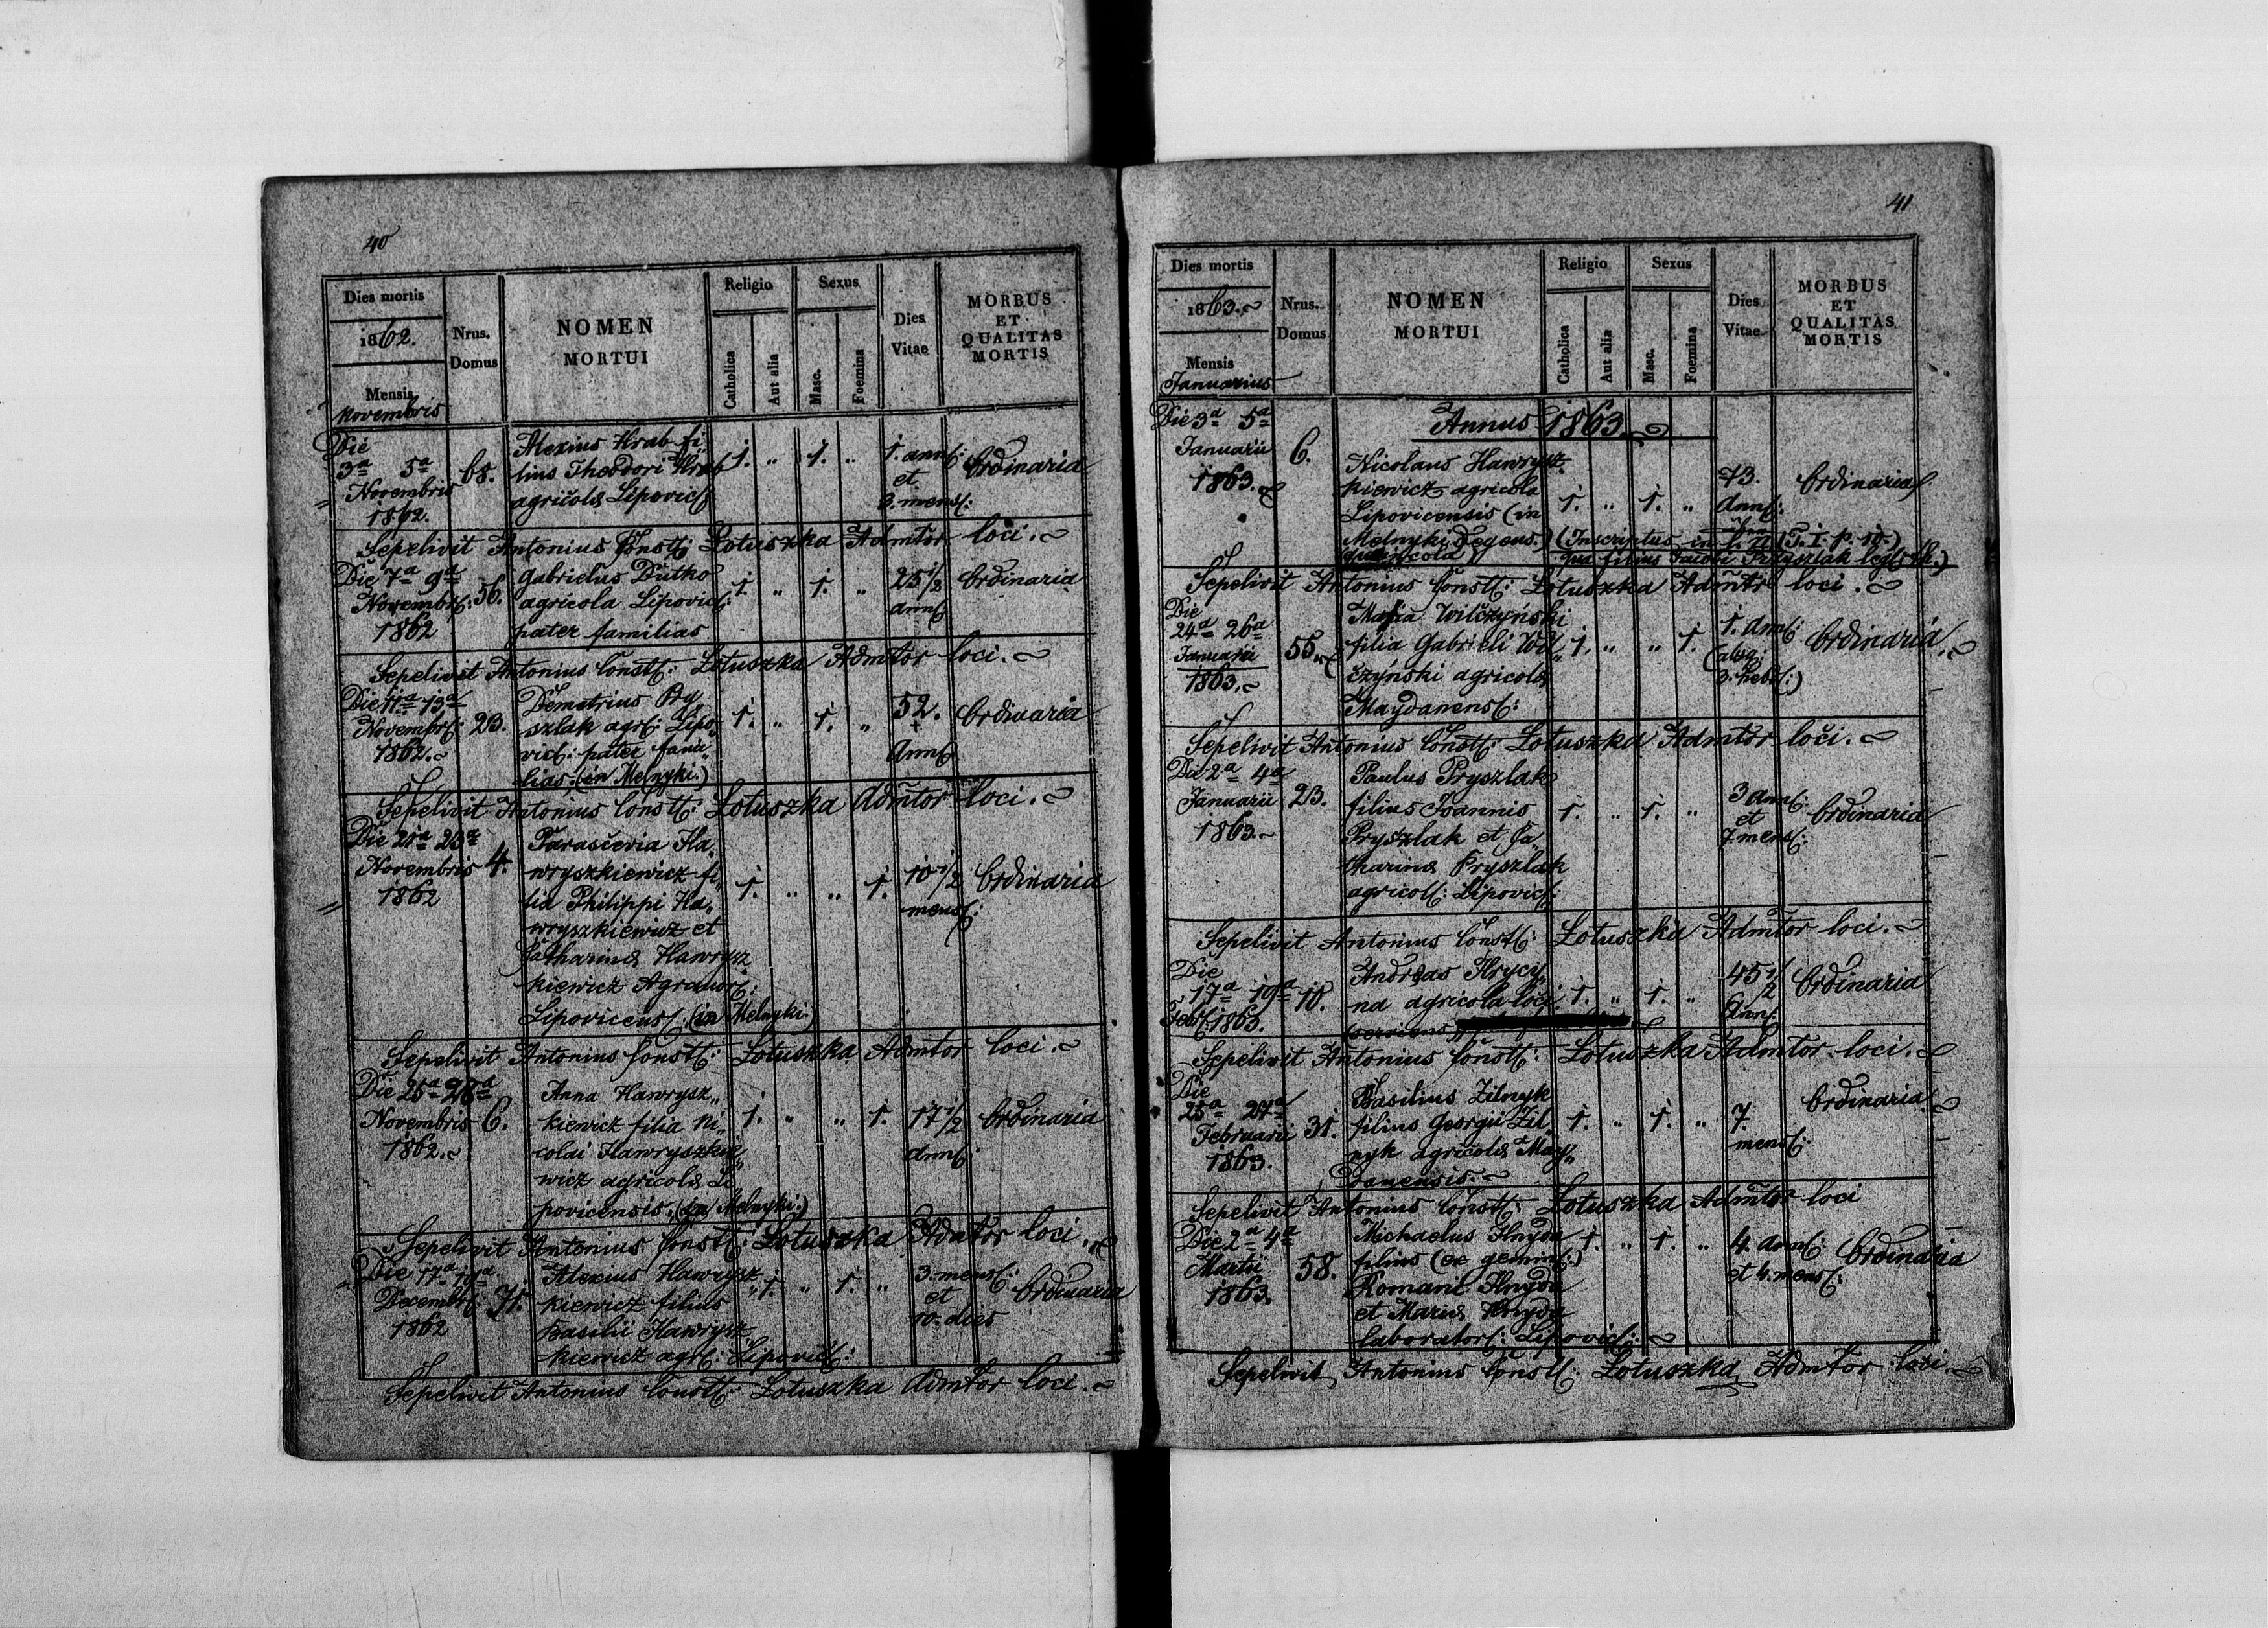 40
Dies mortis
1862.
Mensis
Novembris
Nrus.
Domus
NOMEN
MORTUI
Religio
Catholica
Aut alia
Sexus
Masc.
Foemina
Dies
Vitae
MORBUS
ET
QUALITAS
MORTIS
Die
3a 5a
Novembris
1862.
68.
Alexius Hrab fi„
lius Theodori Hrab
agricolæ Lipovic:
1. „ 1. „
1. ann:
et
3. mens:
Ordinaria
Sepelivit Antonius Const: Lotuszka Admtor loci.
Die 7a 9a
Novembr:
1862
56.
Gabrielus Dutko
agricola Lipovic:
pater familias
1. „ 1. „
25 1/2
ann:
Ordinaria
Sepelivit Antonius Const: Lotuszka Admtor loci.
Die 11a 13a
Novembr:
1862.
23.
Demetrius Pry„
szlak agr: Lipo„
vic: pater fami„
lias. (in Melnyki.)
1. „ 1. „
52.
Ann:
Ordinaria
Sepelivit Antonius Const: Lotuszka Admtor loci.
Die 21a 23a
Novembris
1862
4.
Parascevia Ha„
wryszkiewicz fi„
lia Philippi Ha„
wryszkiewicz et
Catharinæ Hawrysz
kiewicz Agrator:
Lipovicens: (in Melnyki.)
1. „ „ 1.
10 1/2
mens:
Ordinaria
Sepelivit Antonius Const: Lotuszka Admtor loci.
Die 25a 28a
Novembris
1862.
6.
Anna Hawrysz„
kiewicz filia Ni„
colai Hawryszkie„
wicz agricolæ Li
povicensis. (in Melnyki.)
1. „ „ 1.
17 1/2
ann:
Ordinaria
Sepelivit Antonius Const: Lotuszka Admtor loci.
Die 17a 19a
Decembr:
1862
71.
Alexius Hawrysz
kiewicz filius
Basilii Hawrysz
kiewicz agr: Lipovic:
1. „ 1. „
3. mens:
et
10. dies
Ordinaria
Sepelivit Antonius Const: Lotuszka Admtor loci.
41
Dies mortis
1863.
Mensis
Januarius
Nrus.
Domus
NOMEN
MORTUI
Religio
Catholica
Aut alia
Sexus
Masc.
Foemina
Dies
Vitae
MORBUS
ET
QUALITAS
MORTIS
Annus 1863.
Die 3a 5a
Januarii
1863.
6.
Nicolaus Hawrysz
kiewicz agricola
Lipovicensis (in
Melnyki degens.) (Inscriptus in l. n. T. I. p. 10.)
qua filius Pryszlak
1. „ 1. „
73.
Ann:
Ordinaria
Sepelivit Antonius Const: Lotuszka Admtor loci.
Die
24a 26a
Januarii
1863.
55.
Maria Wilczyński
filia Gabrieli Wil„
czyński agricolæ
Maydanens:
1. „ „ 1.
1. ann:
3. hebd:)
Ordinaria.
Sepelivit Antonius Const: Lotuszka Admtor loci.
Die 2a 4a
Januarii
1863.
23.
Paulus Pryszlak
filius Joannis
Pryszlak et Ca„
tharinæ Pryszlak
agricol: Lipovic:
1. „ 1. „
3 ann:
et
7. mens:
Ordinaria
Sepelivit Antonius Const: Lotuszka Admtor loci.
Die
17a 19a
Febr: 1863.
10.
Andreas Hrycy„
na agricola loci
(serviens)
1. „ 1. „
45 1/2
Ann:
Ordinaria
Sepelivit Antonius Const: Lotuszka Admtor loci.
Die
25a 27a
Februarii
1863.
31.
Basilius Zilnyk
filius Georgii Zil„
nyk agricolæ May„
danensis.
1. „ 1. „
7.
mens:
Ordinaria
Sepelivit Antonius Const: Lotuszka Admtor loci
Die 2a 4a
Martii
1863.
58.
Michaelus Hnyda
filius (ex gemin:)
Romani Hnyda
et Mariæ Hnyda
laborator: Lipovic:
1. „ 1. „
4. ann:
et 4. mens:
Ordinaria
Sepelivit Antonius Const: Lotuszka Admtor loci.